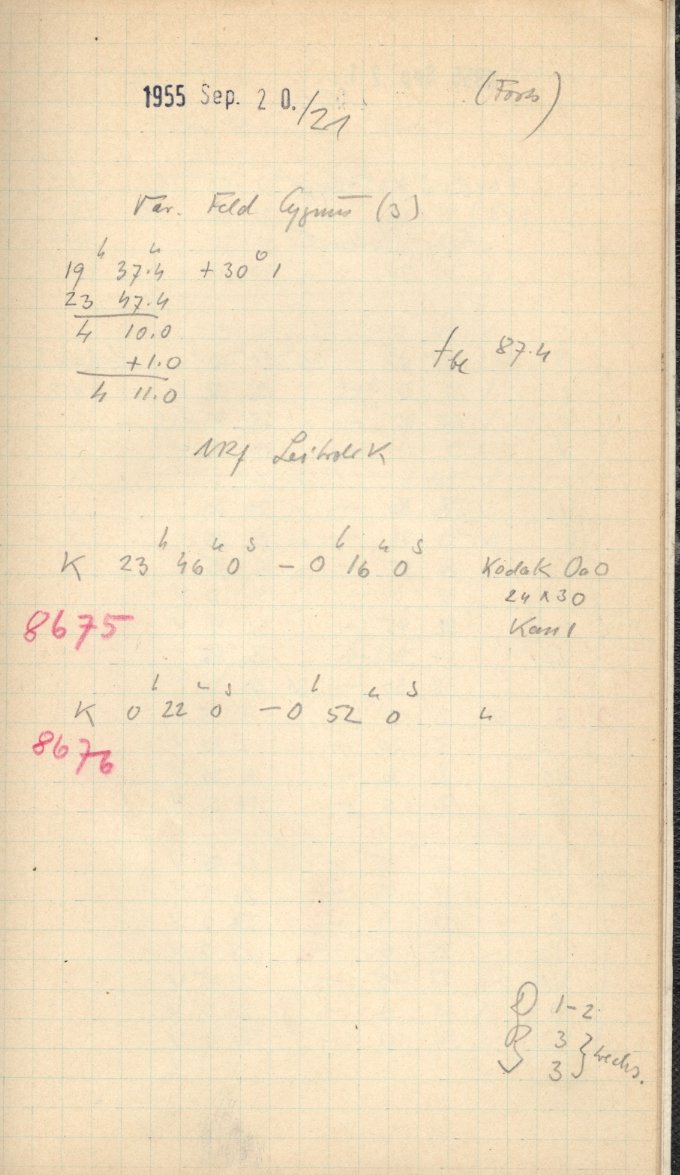 1955 Sep. 20./21
Var. Feld Cygnus (3)
19ʰ 37.4ᵐ +30° 1
23 47.4
4 10.0
+1.0
4 11.0
87.4
K 23ʰ 46ᵐ 0ˢ – 0ʰ 16ᵐ 0ˢ Kodak OaO
24 x 30
8675
K 0ʰ 22ᵐ 0ˢ – 0ʰ 52ᵐ 0ˢ "
8676
1-2
3
3 } wechs.